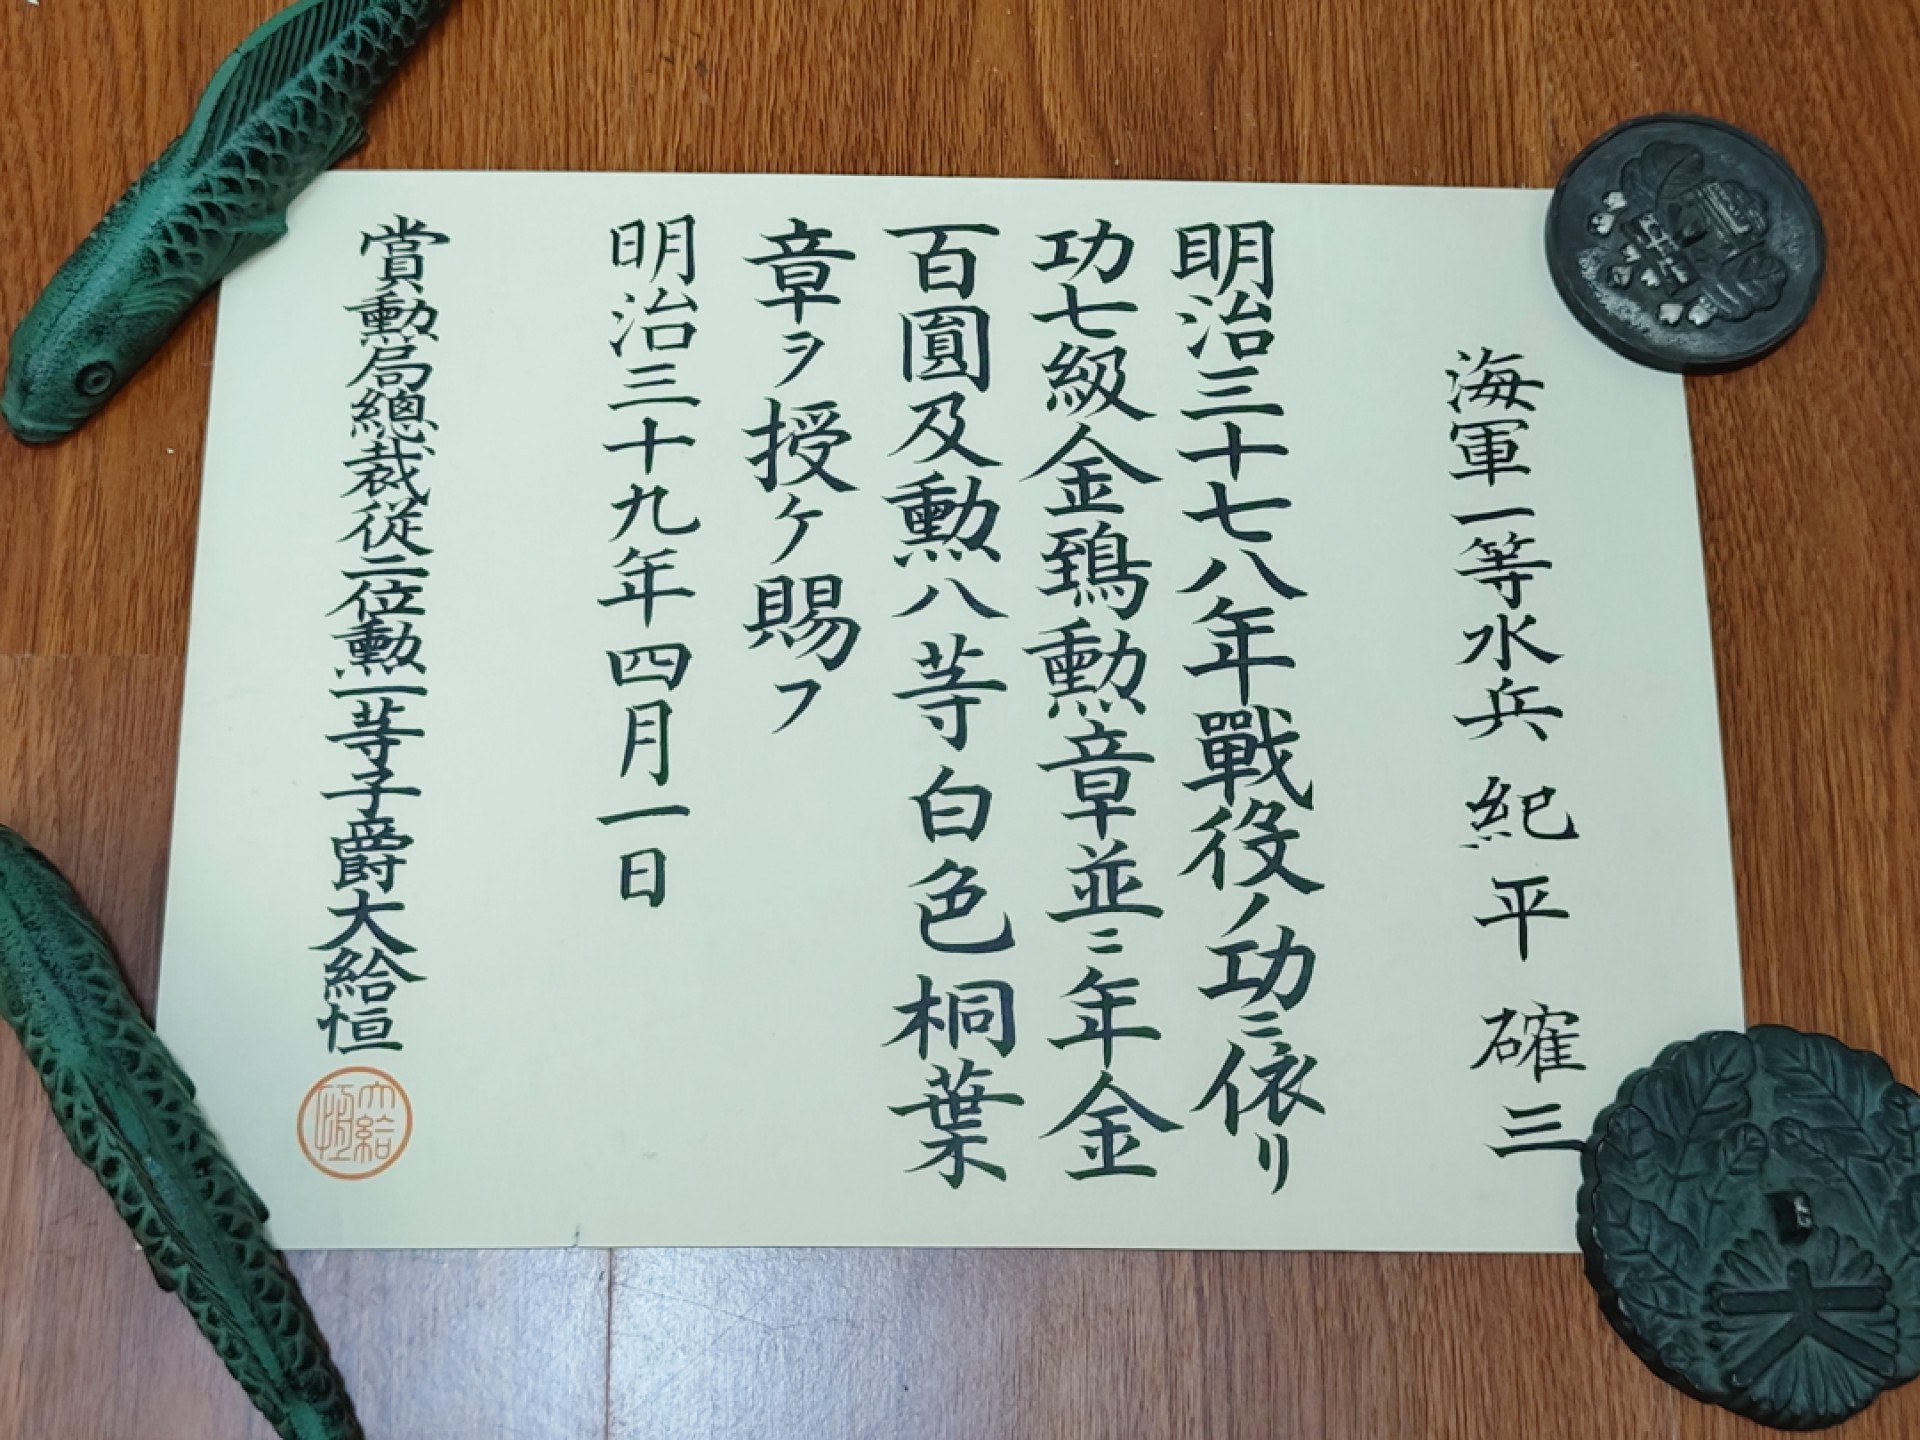 海軍一等水兵 紀平確三
明治三十七八年戰役ノ功ニ依リ
功七級金鵄勲章並ニ年金
百圓及勲八等白色桐葉
章ヲ授ケ賜フ
明治三十九年四月一日
賞勲局總裁従二位勲一等子爵大給恒
大給
恒